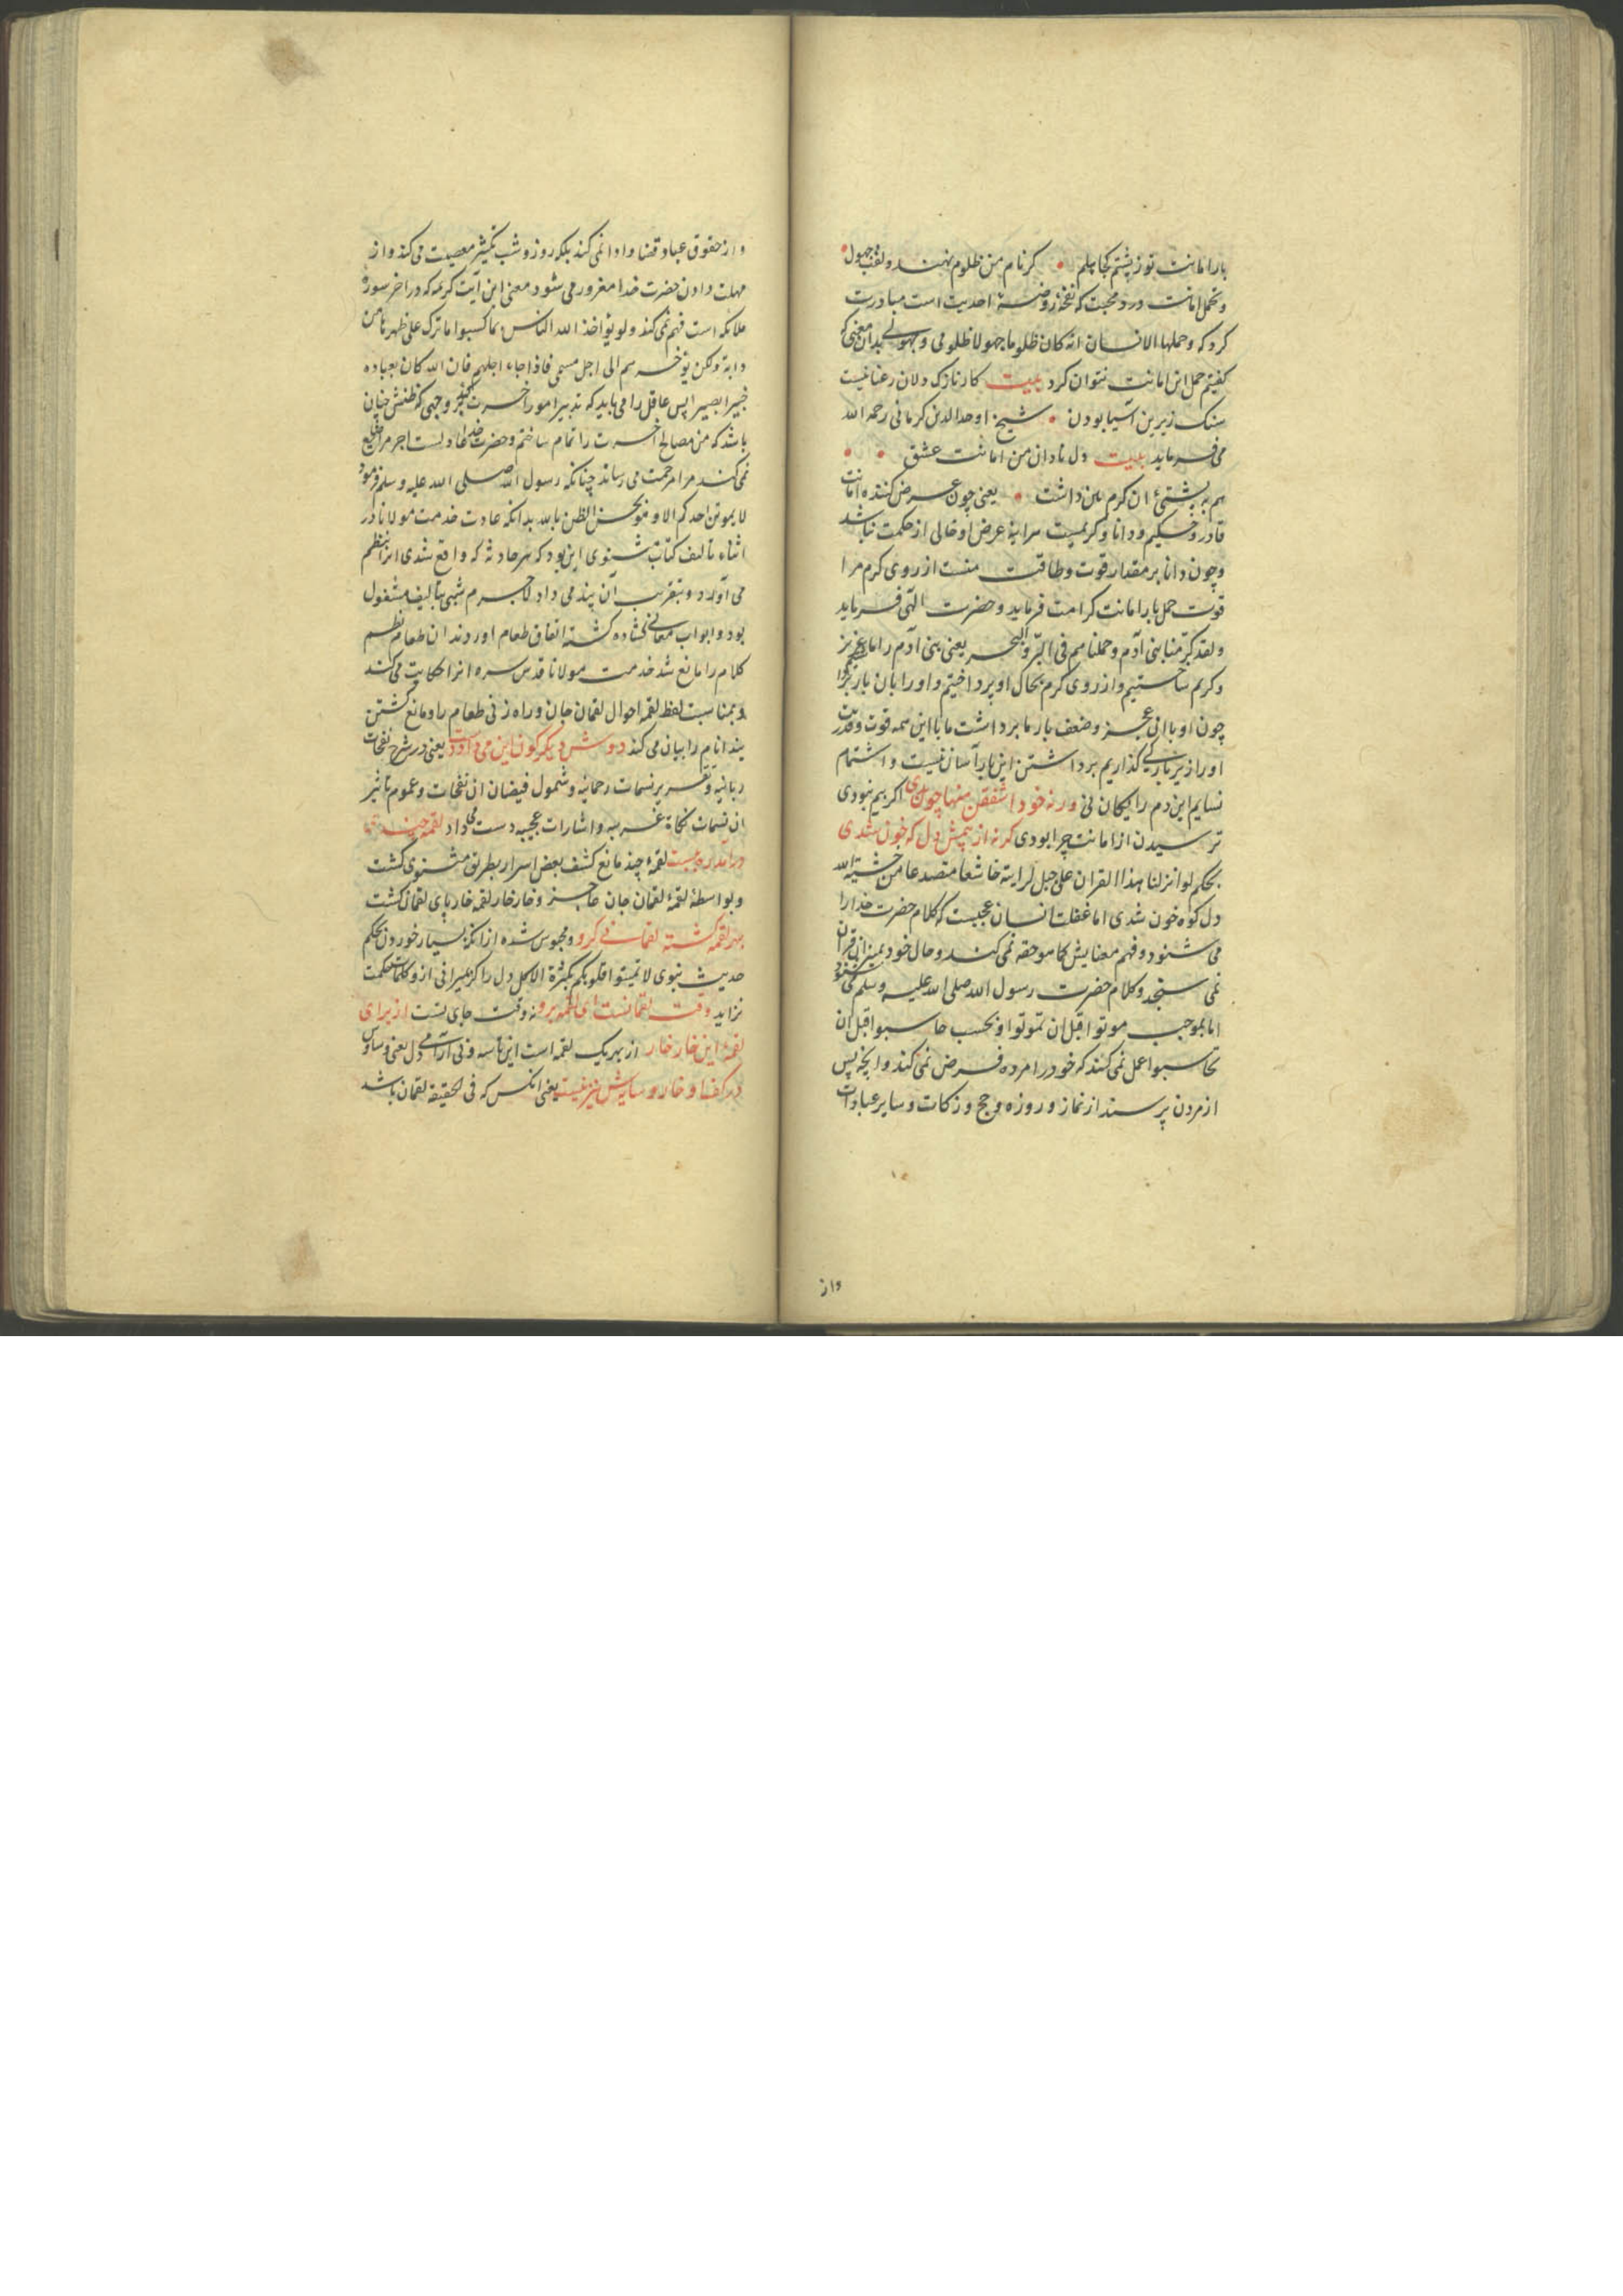 بار امانت تو ز پشتم کجا چلم • کر نام من ظلوم نهند و لقب جهول •
و تحمل امانت درد محبت که نفخهٔ روضهٔ احدیت است مبادرت
کرد که و حملها الانسان انه کان ظلوما جهولا ظلومی و جهولی بدان معنی که
کفتیم حمل این امانت نتوان کرد بیت کار نازک دلان رعنا نیست
سنک زیرین آسیا بودن • شیخ اوحد الدین کرمانی رحمه الله
می فرماید بیت دل نادان من امانت عشق • •
هم به پشتیٔ ان کرم بمن داشت • یعنی چون عرض کننده امانت
قادر و حکیم و دانا و کریمست هر اینه عرض او خالی از حکمت نباشد
و چون دانا بر مقدار قوت و طاقت منست از روی کرم مرا
قوت حمل بار امانت کرامت فرماید و حضرت الهی فرماید
و لقد کرّمنا بنی آدم و حملناهم فی البرّ و البحر یعنی بنی آدم را ما عزیز
و کریم ساختیم و از روی کرم بحال او پرداختیم و او را بان بار
چون او با ان عجز و ضعف بار ما برداشت ما با این همه قوت و قدرت
او را زیر بار کی کذاریم برداشتن این بار آسان نیست و اشتمام
نسایم این دم رایکان نی ورنه خود اشفقن منها چون بدی اکر بیم نبودی
ترسیدن از امانت چرا بودی کرنه از بیمش دل که خون شدی
بحکم لو انزلنا هذا القران علی جبل لرایته خاشعا متصدعا من خشیة الله
دل کوه خون شدی اما غفلت انسان عجبست که کلام حضرت خدا را
می شنود و فهم معنایش کما هو حقه نمی کند و حال خود بمیزان قران
نمی سنجد و کلام حضرت رسول الله صلی الله علیه و سلم می شنود
اما بموجب موتوا قبل ان تموتوا و بحسب حاسبوا قبل ان
تحاسبوا عمل نمی کند که خود را مرده فرض نمی کند و انچه پس
از مردن پرسند از نماز و روزه و حج و زکات و سایر عبادات
واز
و از حقوق عباد قضا و ادا نمی کند بلکه روز و شب تکثیر معصیت می کند و از
مهلت دادن حضرت خدا مغرور می شود معنی این آیت کریمه که در اخر سورهٔ
ملائکه است فهم نمی کند و لو یؤاخذ الله الناس بما کسبوا ما ترک علی ظهرها من
دابة و لکن یؤخرهم الی اجل مسمی فاذا جاء اجلهم فان الله کان بعباده
بصیرا پس عاقل را می باید که تدبیر امور آخرت کند بر وجهی که ظنش چنان
باشد که من مصالح آخرت را تمام ساختم و حضرت خدا عادلست اجر مرا ضایع
نمی کند مرا مرحمت می رساند چنانکه رسول الله صلی الله علیه و سلم فرمود
لا یموتن احدکم الا و هو یحسن الظن بالله بدانکه عادت خدمت مولانا در
اثناء تالیف کتاب مثنوی این بود که هر حادثه که واقع شدی انرا بنظم
می آورد و بتقریب آن پند می داد لاجرم شبی بتالیف مشغول
بود و ابواب معانی کشاده کشته اتفاق طعام اوردند ان طعام نظم
کلام را مانع شد خدمت مولانا قدس سره انرا حکایت می کند
و بمناسبت لفظ لقمه احوال لقمان جان و راه زنی طعام را و مانع کشتن
پند انام را بیان می کند دوش دیکر کون این می داد دست یعنی در شرح نفحات
ربانیه و تقریر نسمات رحمانیه و شمول فیضان ان نفحات و عموم تاثیر
ان نسمات نکاة غریبه و اشارات عجیبه دست می داد لقمه چندی
درامد ره ببست لقمهٔ چند مانع کشف بعض اسرار بطریق مثنوی کشت
و بواسطهٔ لقمه لقمان جان عاجز و خار خار لقمه خار پای لقمان کشت
بهر لقمه کشته لقمانی کرو و محبوس شده از انکه بسیار خوردن بحکم
حدیث نبوی لا تمیتوا قلوبکم بکثرة الاکل دل را کر میرانی ازو کلمات حکمت
نزاید وقت لقمانست ای لقمه برو نه وقت جای تست از برای
لقمهٔ این خار خار از بهر یک لقمه است این تاسه و بی آرامی دل یعنی وساوس
در کف او خار و سایه‌ش نیز نیست یعنی انکس که فی الحقیقه لقمان باشد